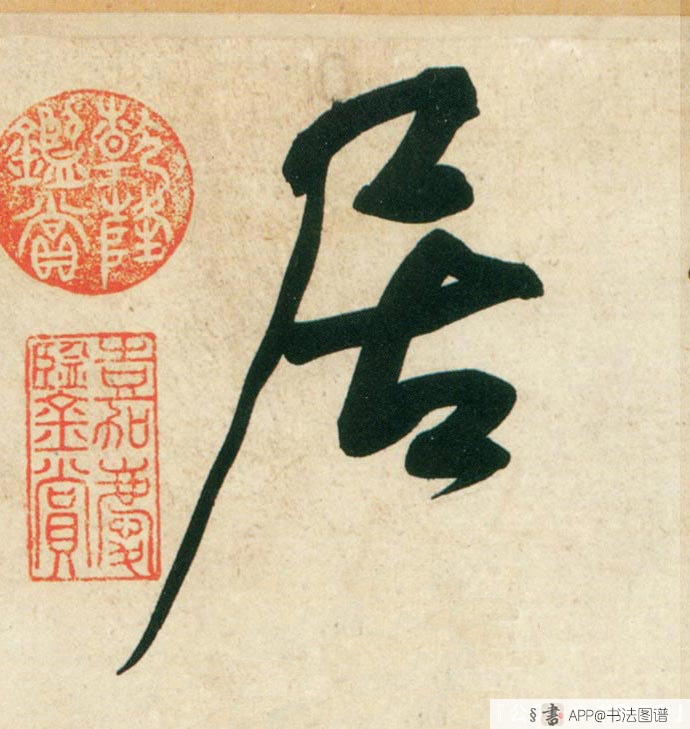 居
乾隆
鑑賞
嘉慶
鑑賞
§ 書 APP@书法图谱